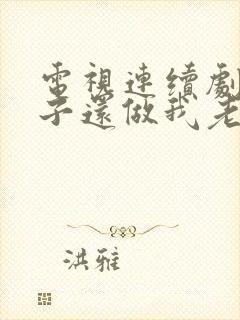 電視連續劇
子還做我老
洪雅